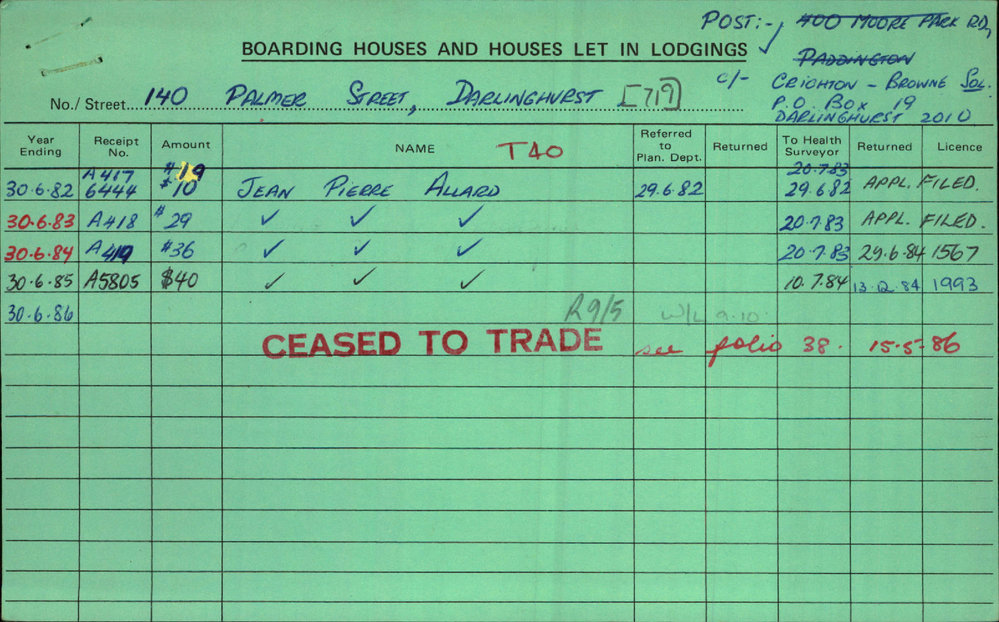 POST:- 400 MOORE PARK RD,
BOARDING HOUSES AND HOUSES LET IN LODGINGS
PADDINGTON
C/- CRIGHTON - BROWNE SOL.
P.O. BOX 19
No./Street 140 PALMER STREET, DARLINGHURST [719]
DARLINGHURST 2010
Year Ending Receipt No. Amount NAME T40 Referred to Plan. Dept. Returned To Health Surveyor Returned Licence
A417 $19 20.7.83
30.6.82 6444 $10 JEAN PIERRE ALLARD 29.6.82 29.6.82 APPL. FILED.
30.6.83 A418 $29 ✓ ✓ ✓ 20.7.83 APPL. FILED.
30.6.84 A419 $36 ✓ ✓ ✓ 20.7.83 29.6.84 1567
30.6.85 A5805 $40 ✓ ✓ ✓ 10.7.84 13.12.84 1993
30.6.86 R9/5 W/L 9.10.
CEASED TO TRADE see folio 38. 15.5.86